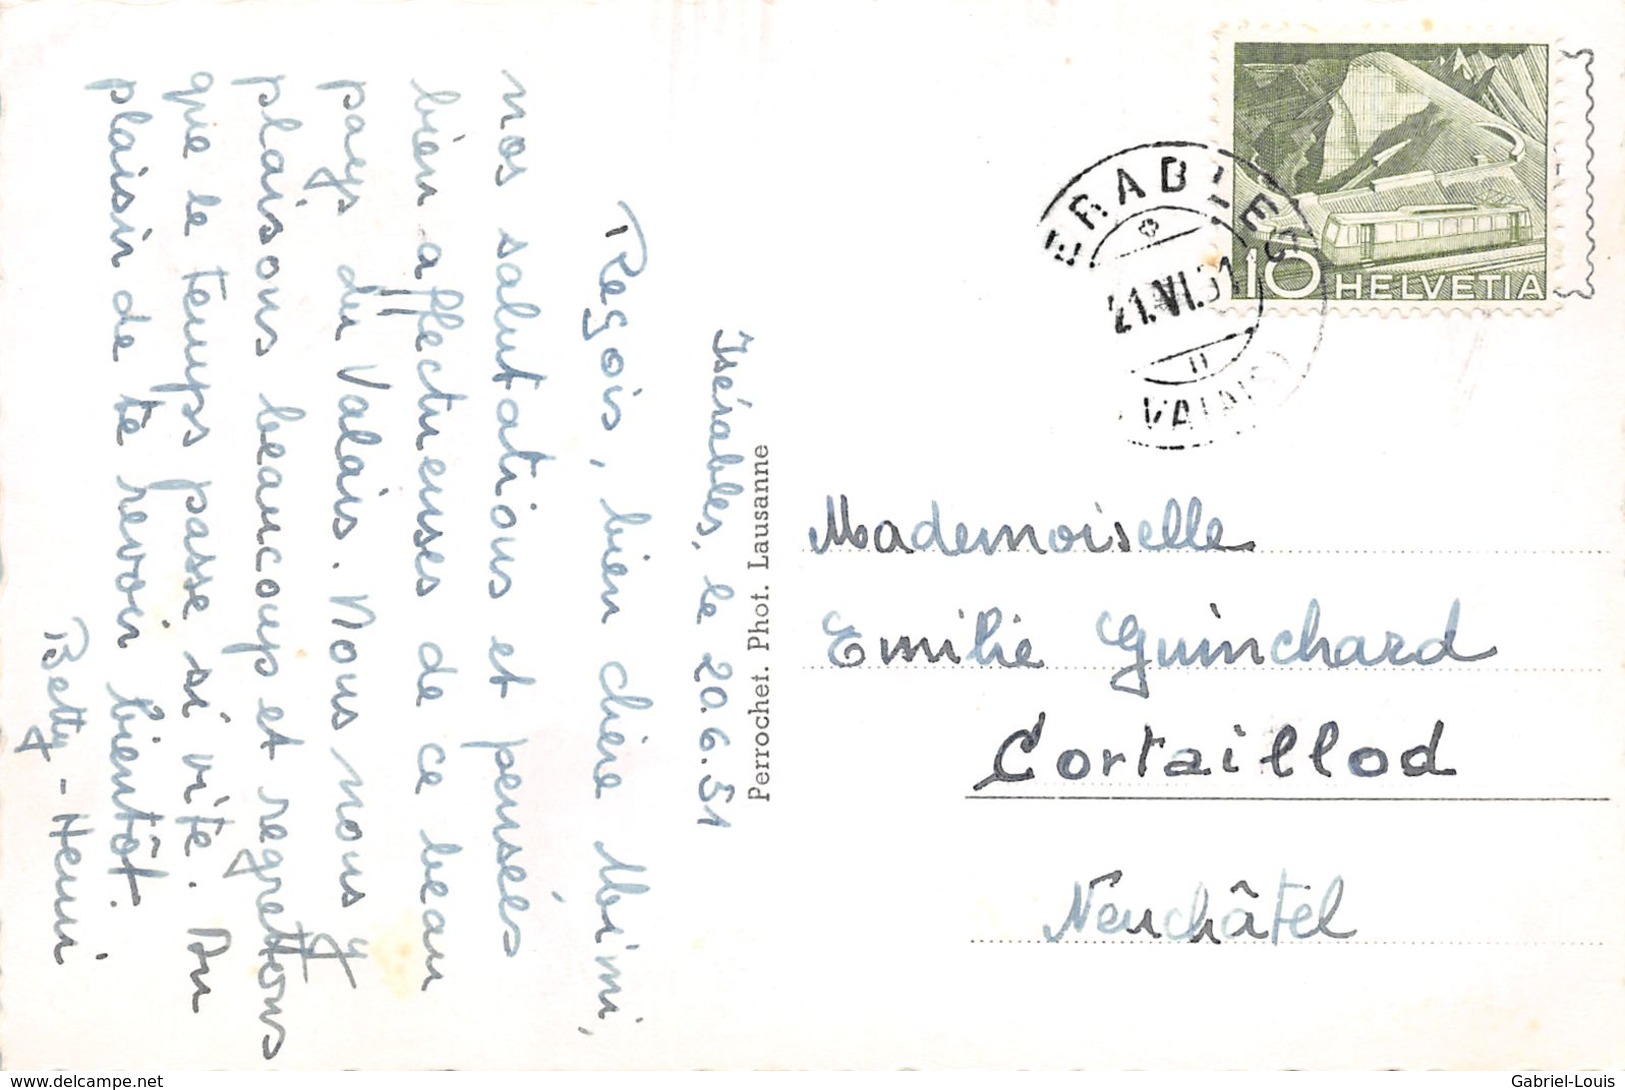 Isérables, le 20.6.51
Reçois, bien chère Mimi,
nos salutations et pensées
bien affectueuses de ce beau
pays du Valais. Nous nous y
plaisons beaucoup et regrettons
que le temps passe si vite. Au
plaisir de te revoir bientôt.
Betty - Henri
Perrochet. Phot. Lausanne
10 HELVETIA
ERABLES
21.VI.51
(VALAIS)
Mademoiselle
Emilie Guinchard
Cortaillod
Neuchâtel
delcampe.net
Gabriel-Louis